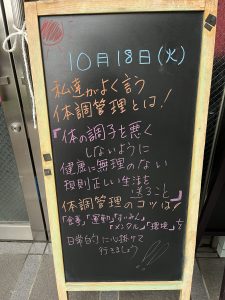 10月18日(火)
私達がよく言う
体調管理とは!
『体の調子を悪く
しないように
健康に無理のない
規則正しい生活を
送ること』
体調管理のコツは!
「食事」「運動」「すいみん」
「メンタル」「環境」を
日常的に心掛けて
行きましょう